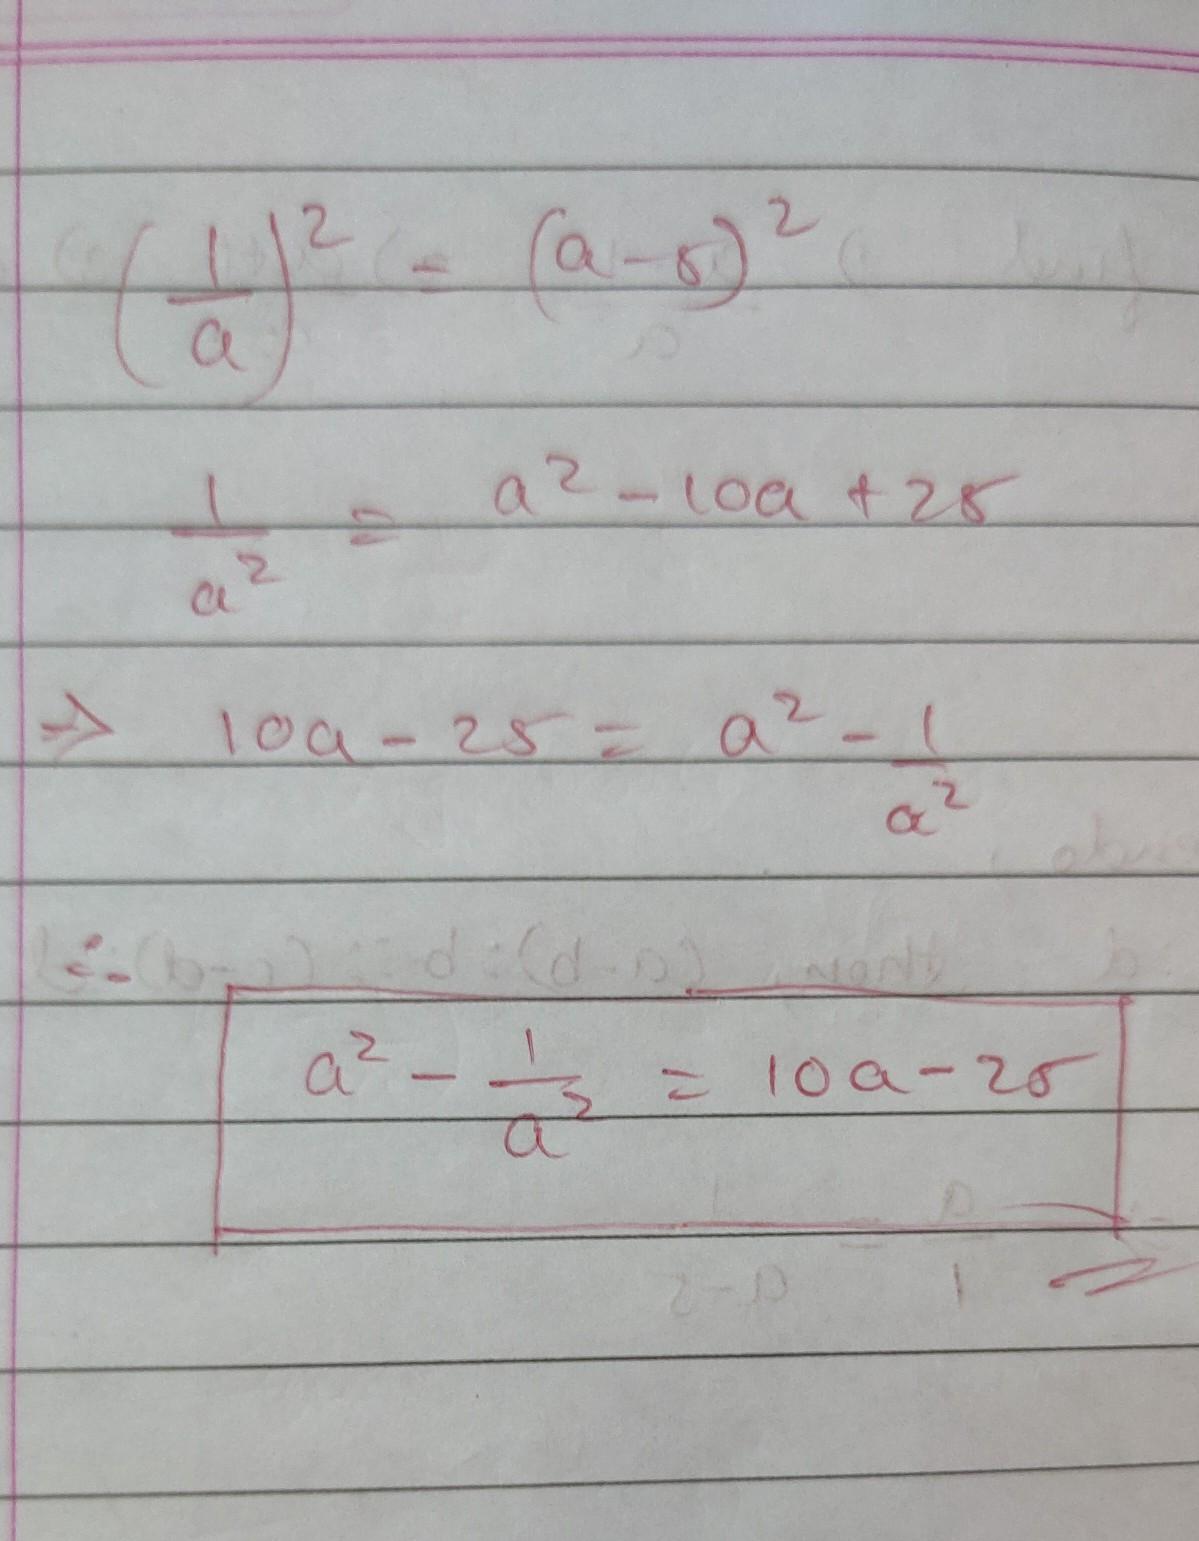 (1/a)² = (a-5)²
1/a² = a² - 10a + 25
⇒ 10a - 25 = a² - 1/a²
∴ a² - 1/a² = 10a - 25